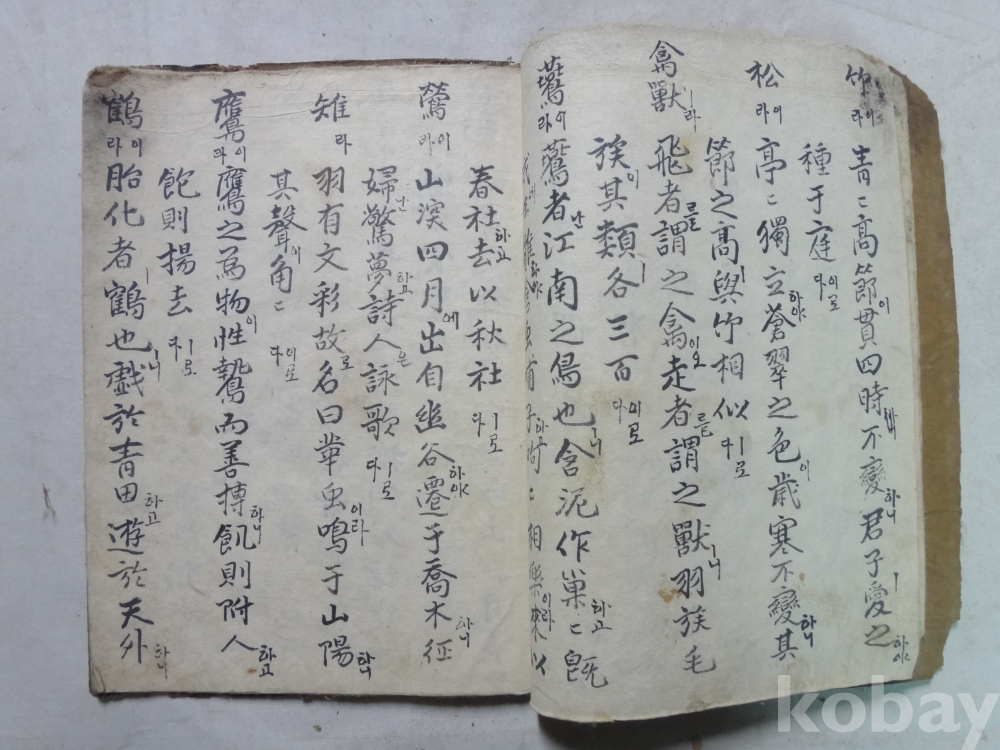 竹이라 青〻高節이貫四時不變하니君子ㅣ愛之하야
種于庭이로다
松이라 亭〻獨立하야蒼翠之色이歲寒不變하니其
節之高ㅣ與竹相似ㅣ로다
禽獸ㅣ라 飛者를謂之禽이오走者를謂之獸ㅣ니羽族毛
族이其類ㅣ各三百이로다
鷰이라 鷰者난江南之鳥也ㅣ니含泥作巢하고〻旣
相樂이라來以
春社하고去以秋社ㅣ로다
鶯이라 山深四月에出自幽谷하야遷于喬木하니征
婦난驚夢하고詩人은詠歌ㅣ로다
雉라 羽有文彩故로名曰華虫이라鳴于山陽하니
其聲이角〻이로다
鷹이라 鷹之為物이性鷙而善搏하니飢則附人하고
飽則揚去ㅣ로다
鶴이라 胎化者ㅣ鶴也ㅣ니戱於青田하고遊於天外하니
kobay